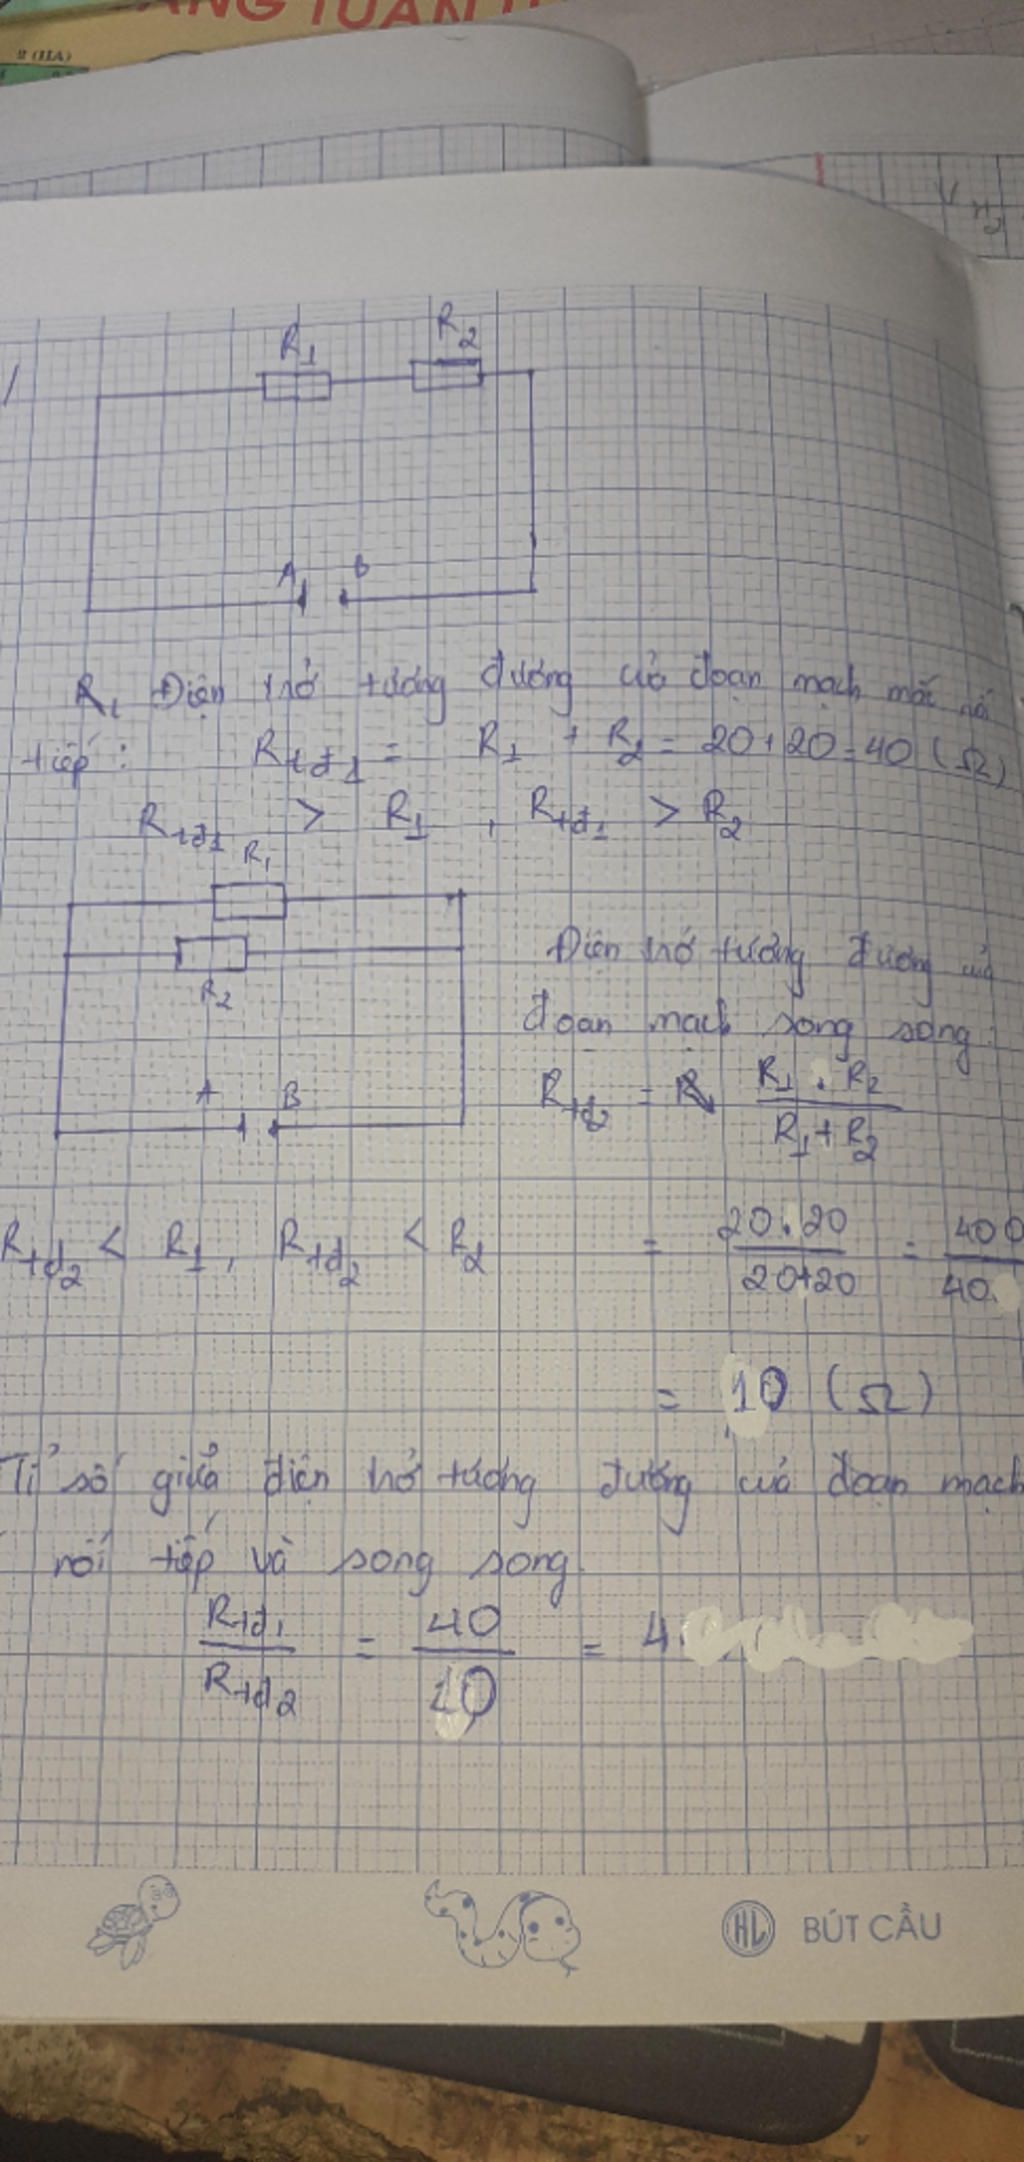 ANG TUẦN
2 (IIA)
R1 R2
A B
R1 Điện trở tương đương của đoạn mạch mắc nối
tiếp: Rtđ1 = R1 + R2 = 20 + 20 = 40 (Ω)
Rtđ1 > R1 , Rtđ1 > R2
R1
R2
A B
Điện trở tương đương của
đoạn mạch song song:
Rtđ2 = R1 . R2 / R1 + R2
Rtđ2 < R1, Rtđ2 < R2
= 20.20 / 20+20 = 400 / 40
= 10 (Ω)
Tỉ số giữa điện trở tương đương của đoạn mạch
nối tiếp và song song.
Rtđ1 / Rtđ2 = 40 / 10 = 4.
HL BÚT CẦU